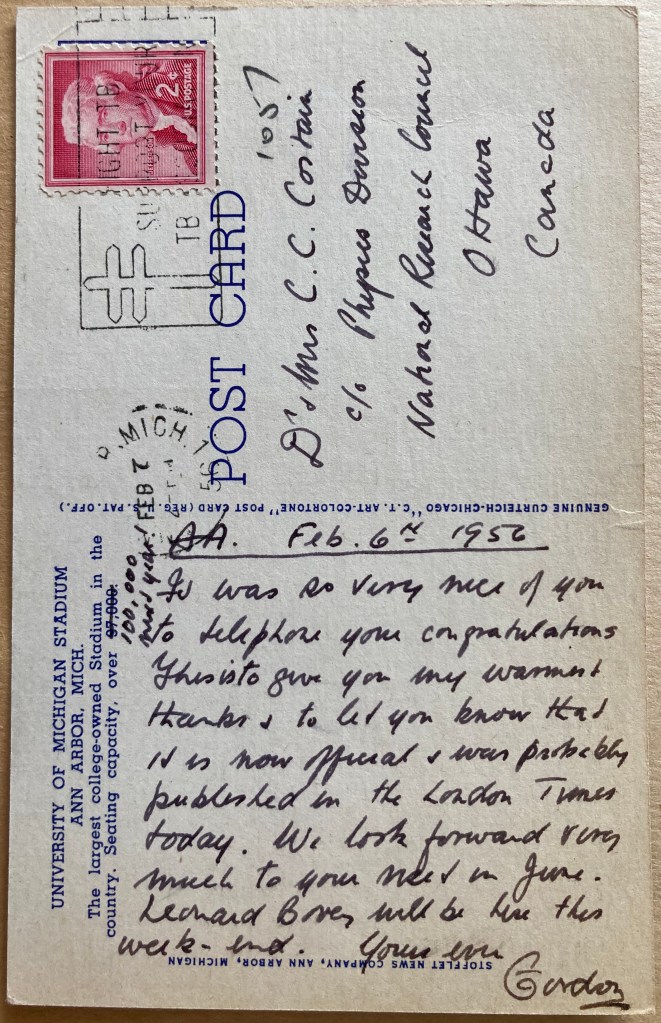 UNIVERSITY OF MICHIGAN STADIUM
ANN ARBOR, MICH.
The largest college-owned Stadium in the
country. Seating capacity, over 97,000.
100,000
next year!
AA. Feb. 6th 1956
It was so very nice of you
to telephone your congratulations
This is to give you my warmest
thanks & to let you know that
it is now official & was probably
published in the London Times
today. We look forward very
much to your visit in June.
Leonard Bovey will be here this
week-end. Yours ever
Gordon
STOFFLET NEWS COMPANY, ANN ARBOR, MICHIGAN
GENUINE CURTEICH-CHICAGO "C.T. ART-COLORTONE" POST CARD (REG. U.S. PAT. OFF.)
POST CARD
2¢
U.S. POSTAGE
FIGHT TB
TB
MICH.
FEB 7
56
1057
Dr & Mrs C. C. Costain
c/o Physics Division
National Research Council
Ottawa
Canada